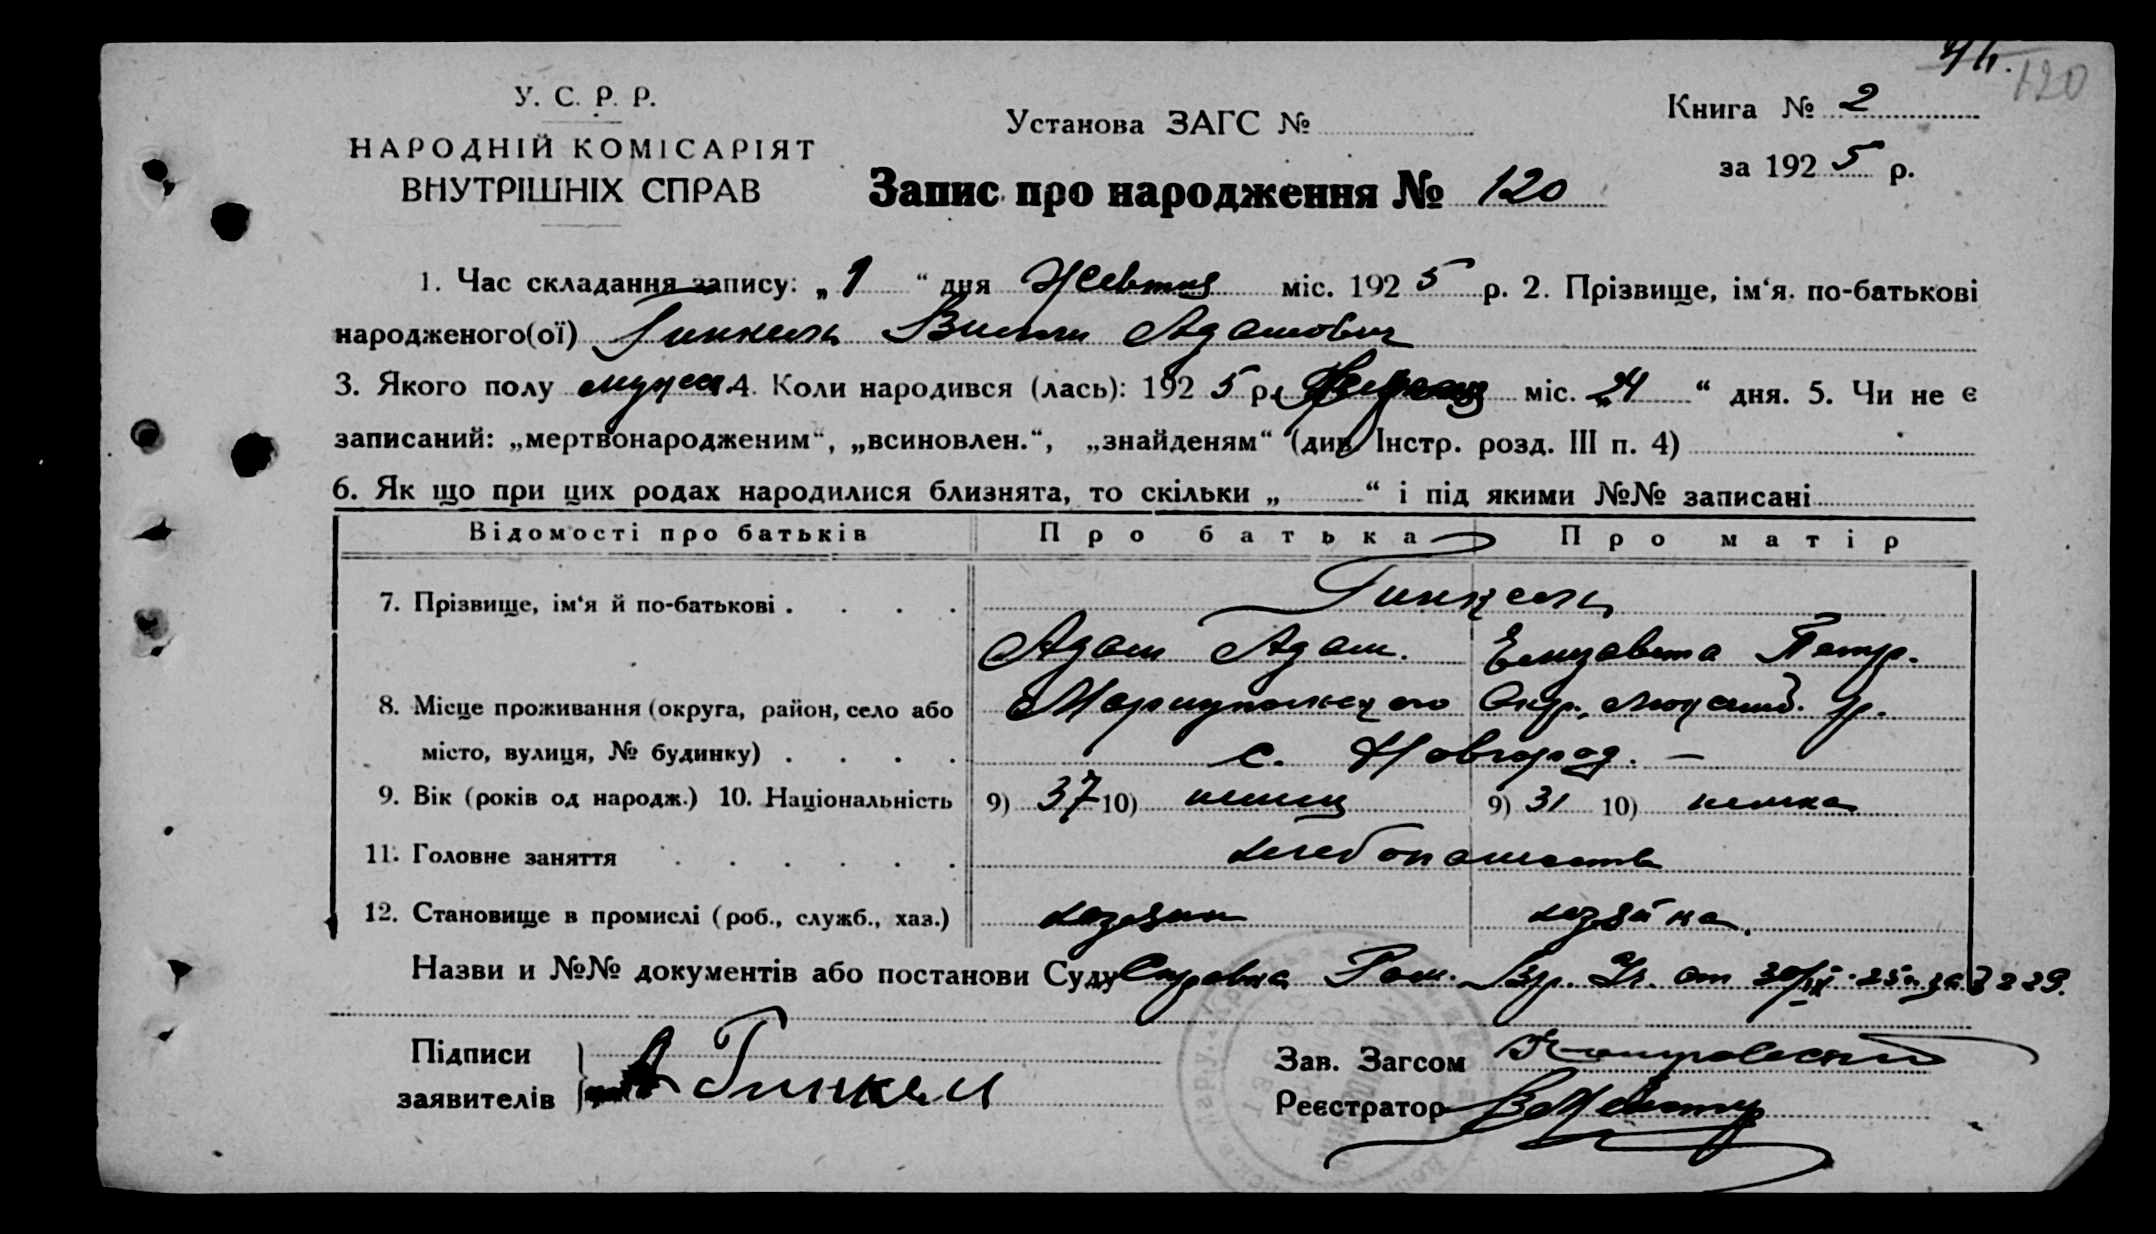 120
У. С. Р. Р.
НАРОДНІЙ КОМІСАРІЯТ
ВНУТРІШНІХ СПРАВ
Установа ЗАГС №
Запис про народження № 120
Книга № 2
за 192 5 р.
1. Час складання запису: „ 1 “ дня Жовтня міс. 192 5 р. 2. Прізвище, ім‘я. по-батькові
народженого(ої) Гинкель Вилли Адамович
3. Якого полу мужск. 4. Коли народився (лась): 192 5 р. міс. „ 24 “ дня. 5. Чи не є
записаний: „мертвонародженим“, „всиновлен.“, „знайденям“ (див. Інстр. розд. III п. 4)
6. Як що при цих родах народилися близнята, то скільки „ “ і під якими №№ записані
Відомості про батьків Про батька Про матір
7. Прізвище, ім‘я й по-батькові . . . . Гинкель
Адам Адам. Елизавета Петр.
8. Місце проживання (округа, район, село або Мариупольского Окр., р.
місто, вулиця, № будинку) . . . . с. Новгород. —
9. Вік (років од народж.) 10. Національність 9) 37 10) немец 9) 31 10) немка
11. Головне заняття . . . . . . хлебопашество
12. Становище в промислі (роб., служб., хаз.) хозяин хозяйка.
Назви и №№ документів або постанови Суду Справка от 30/IX-25 г. за № 229.
Підписи
заявителів А Гинкель
Зав. Загсом
Реєстратор